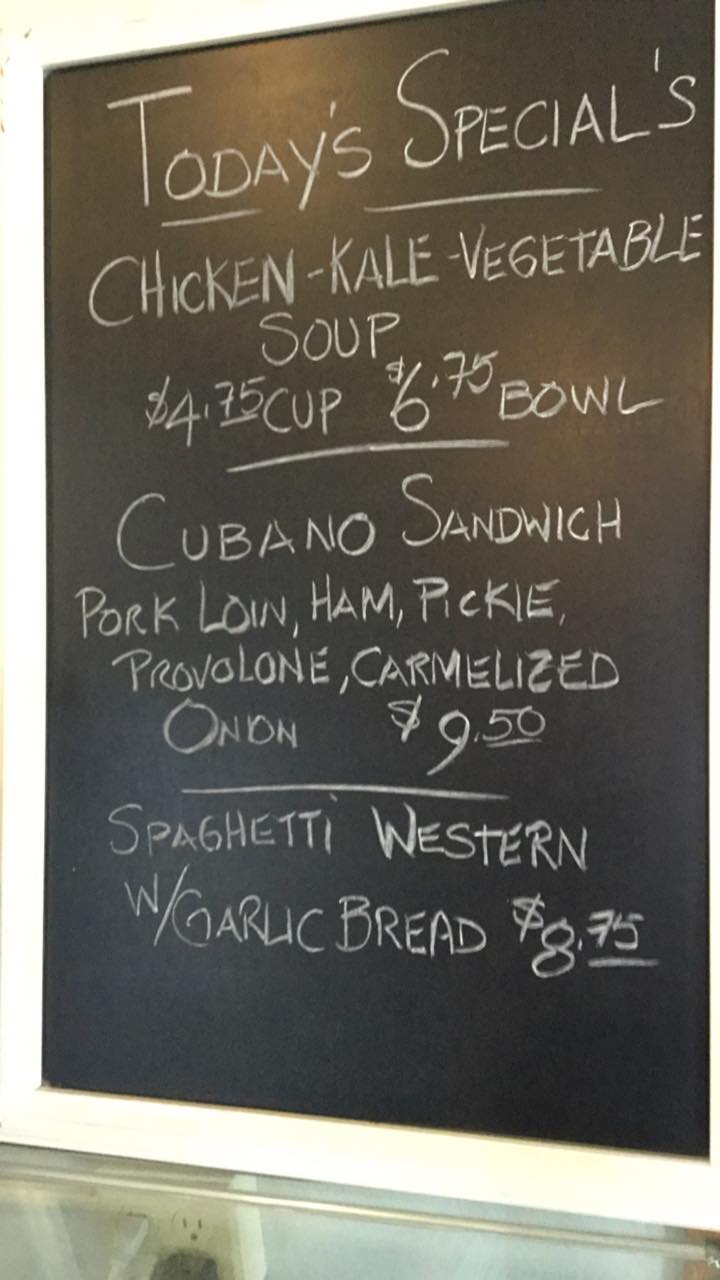 TODAY'S SPECIAL'S
CHICKEN-KALE-VEGETABLE
SOUP
$4.75 CUP $6.75 BOWL
CUBANO SANDWICH
PORK LOIN, HAM, PICKLE,
PROVOLONE, CARMELIZED
ONION $9.50
SPAGHETTI WESTERN
W/GARLIC BREAD $8.75